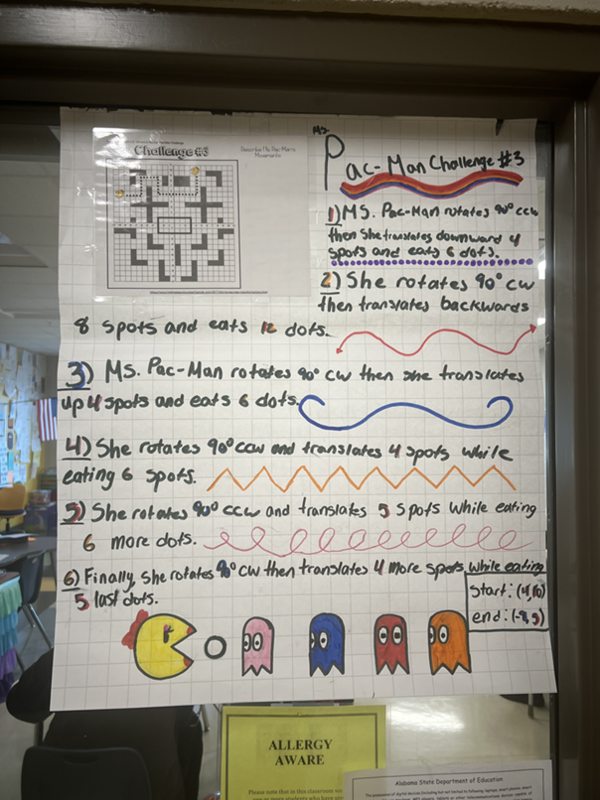 Challenge #3
Describe Ms. Pac-Man's
Movements
Ms.
Pac-Man Challenge #3
1) MS. Pac-Man rotates 90° ccw
then she translates downward 4
spots and eats 6 dots.
2) She rotates 90° cw
then translates backwards
8 spots and eats 12 dots.
3) Ms. Pac-Man rotates 90° cw then she translates
up 4 spots and eats 6 dots.
4) She rotates 90° ccw and translates 4 spots while
eating 6 spots.
5) She rotates 90° ccw and translates 5 spots while eating
6 more dots.
6) Finally, she rotates 90° cw then translates 4 more spots while eating
5 last dots.
Start: (4,10)
end: (-9,5)
ALLERGY
AWARE
Please note that in this classroom
Alabama State Department of Education